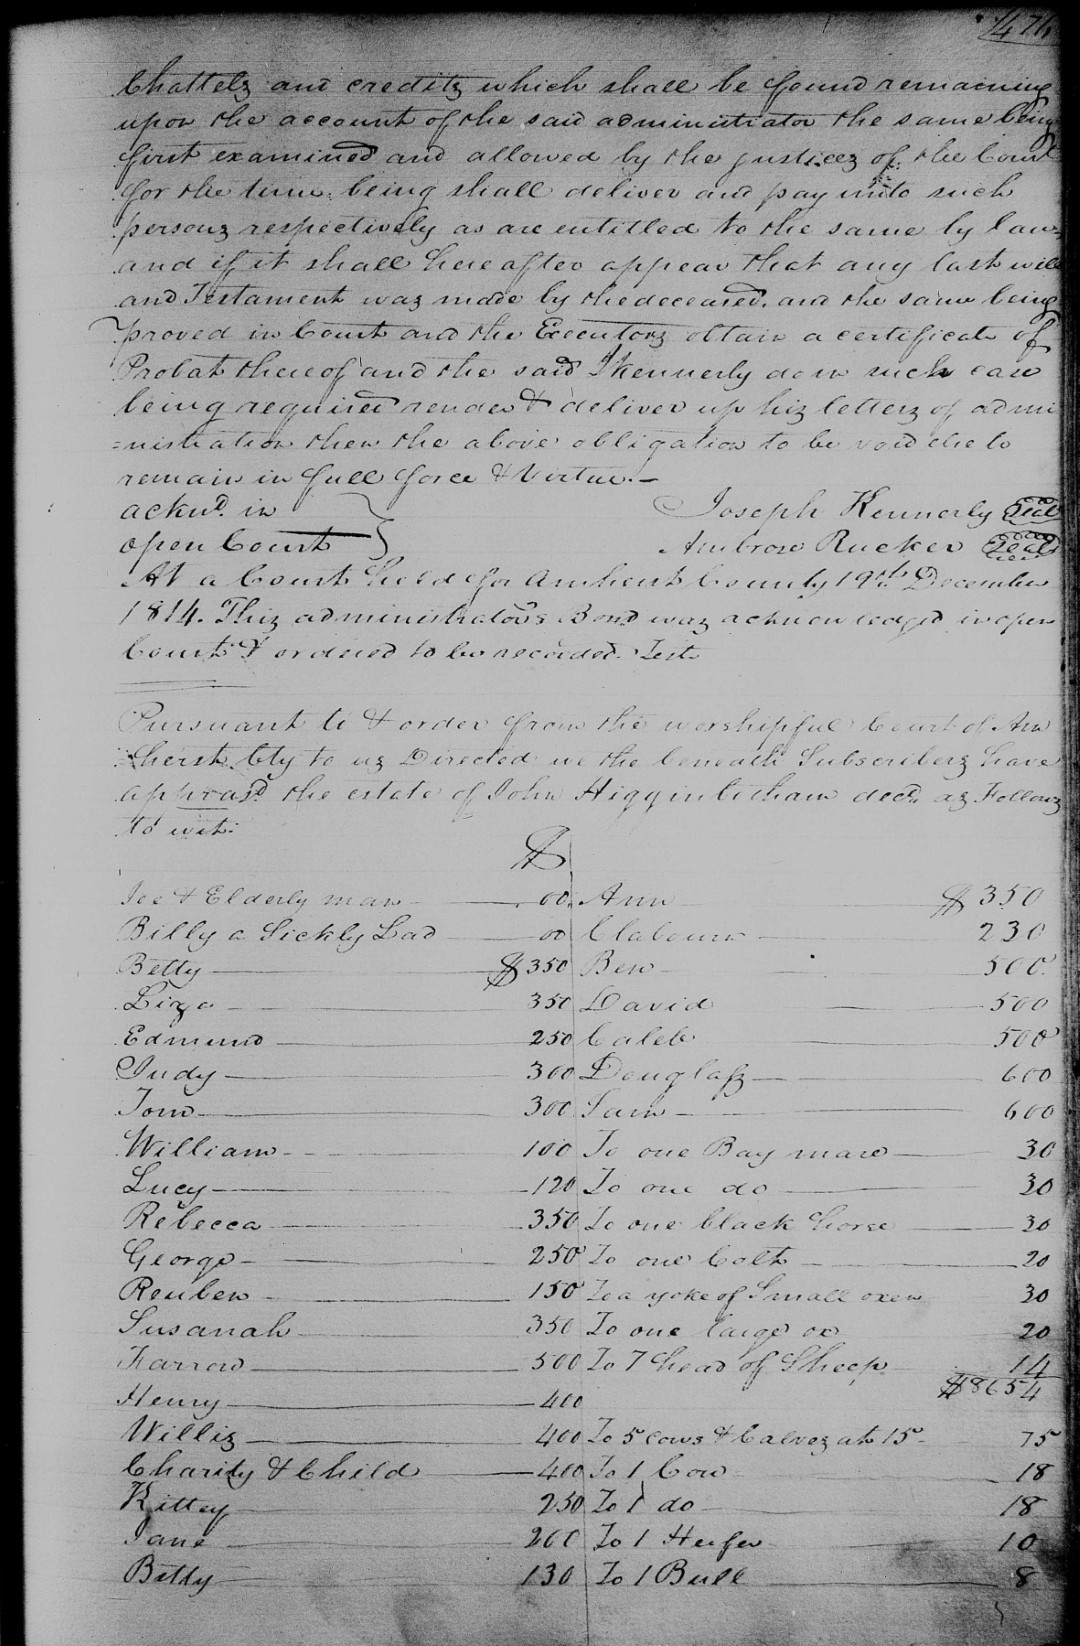 476
Chattels and credits which shall be found remaining
upon the account of the said administrator the same being
first examined and allowed by the justices of the Court
for the time being shall deliver and pay unto such
persons respectively as are entitled to the same by law
and if it shall hereafter appear that any last will
and Testament was made by the deceased, and the same being
proved in Court and the Executors obtain a certificate of
Probat thereof and the said Kennerly do in such case
being required render & deliver up his letters of admi
=nistration then the above obligation to be void else to
remain in full force & Virtue.—
ackwd. in
open Court
Joseph Kennerly Seal
Ambrose Rucker Seal
At a Court held for Amherst County 19th December
1814. This administrators Bond was acknowledged in open
Court & ordered to be recorded. Test
Pursuant to & order from the worshipful Court of Am
=herst Cty to us Directed we the beneath Subscribers have
appraisd. the estate of John Higginbotham decd. as Follows
to wit.
$
Joe & Elderly man 00 Ann $350
Billy a Sickly Lad 00 Clabourn 230
Betty $350 Ben 500
Liza 350 David 500
Edmund 250 Caleb 500
Judy 300 Douglass 600
Tom 300 Sam 600
William 100 To one Bay mare 30
Lucy 120 To one do 30
Rebecca 350 To one black horse 30
George 250 To one Colt 20
Reuben 150 To a yoke of Small oxen 30
Susanah 350 To one large ox 20
Farrow 500 To 7 head of Sheep 14
Henry 400 $8654
Willis 400 To 5 cows & Calves at 15 75
Charity & Child 400 To 1 Cow 18
Kittey 250 To 1 do 18
Jane 200 To 1 Heifer 10
Betty 130 To 1 Bull 8